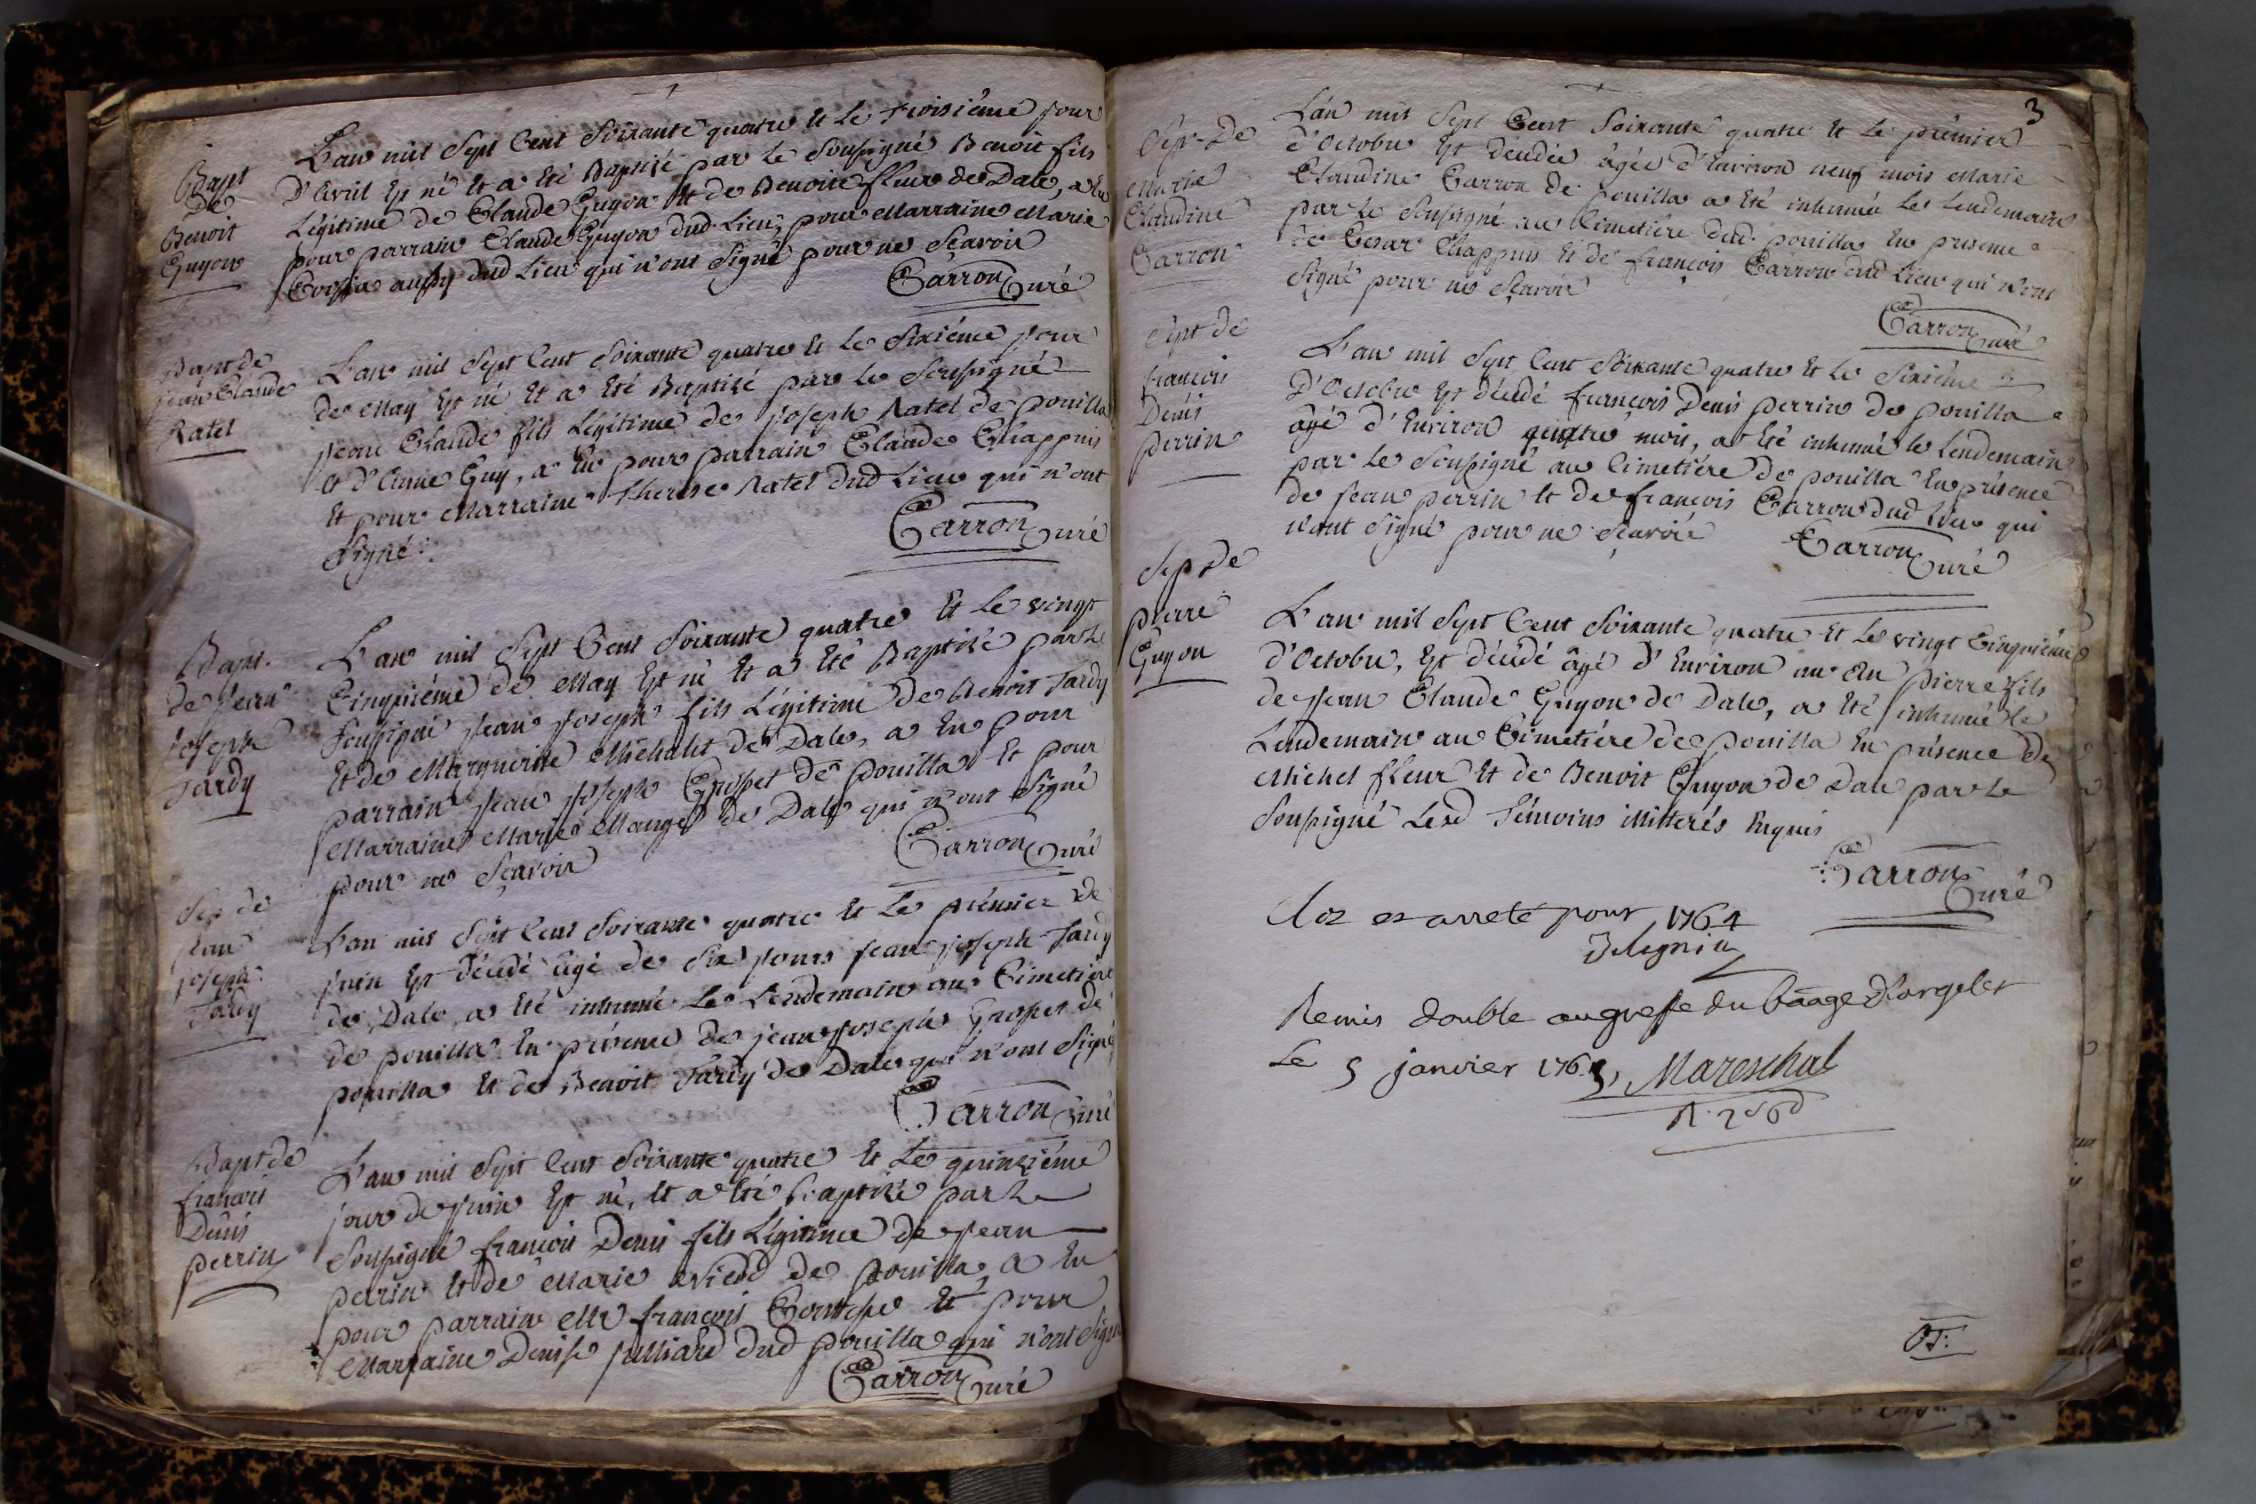 Bapt
de
Benoit
Guyon
L'an mil Sept Cent Soixante quatre et le troisiéme jour
d'avril Est né et a été Baptisé par le Soussigné Benoit fils
Légitime de Claude Guyon et de Benoite fleur de Dale, a Eu
pour parrain Claude Guyon dud. Lieu, pour Marraine Marie
aussy dud Lieu qui n'ont Signé pour ne Scavoir
Carron Curé
Bapt de
jean Claude
Ratel
L'an mil Sept Cent Soixante quatre et le Sixiéme jour
de May Est né et a été Baptisé par le Soussigné
jean Claude fils Légitime de joseph Ratel de pouilla
et d'Anne Guy, a Eu pour parrain Claude Chappuis
et pour Marraine Therese Ratel dud Lieu qui n'ont
Signé.
Carron Curé
Bapt.
de jean
joseph
Tardy
L'an mil Sept Cent Soixante quatre et le vingt
Cinquiéme de May Est né et a été Baptisé par le
Soussigné jean joseph fils Légitime de Benoit Tardy
et de Marguerite Michalet de Dale, a Eu pour
parrain jean joseph Grospet de pouilla et pour
Marraine Marie Monges de Dale qui n'ont Signé
pour ne Sçavoir
Carron Curé
Sep de
jean
joseph
Tardy
L'an mil Sept Cent Soixante quatre et Le prémier de
juin Est décédé âgé de Six jours jean joseph Tardy
de Dale, a été inhumé Le Lendemain au Cimetiére
de pouilla en présence de jean joseph Grospet de
pouilla et de Benoit Tardy de Dale qui n'ont Signé
Carron Curé
Bapt de
françois
Denis
perrin
L'an mil Sept Cent Soixante quatre et Le quinziéme
jour de juin Est né, et a été Baptisé par le
Soussigné françois Denis fils Légitime de jean
perrin et de Marie de pouilla, a Eu
pour parrain Mr françois et pour
Marraine Denise julliard dud pouilla qui n'ont Signé
Carron Curé
3
Sep. De
Marie
Claudine
Carron
L'an mil Sept Cent Soixante quatre et Le prémier
d'Octobre Est décédée âgée d'Environ neuf mois Marie
Claudine Carron de pouilla a été inhumée Le Lendemain
par le Soussigné au Cimetiére dud. pouilla En présence
de Cesar Chappuis et de françois Carron dud Lieu qui n'ont
Signé pour ne Sçavoir
Carron Curé
Sept de
françois
Denis
perrin
L'an mil Sept Cent Soixante quatre et Le Sixiéme
D'Octobre Est décédé françois Denis perrin de pouilla
âgé d'Environ quatre mois, a été inhumé le Lendemain
par le Soussigné au Cimetiére de pouilla En présence
de jean perrin et de françois Carron dud Lieu qui
n'ont Signé pour ne Sçavoir
Carron Curé
Sep de
pierre
Guyon
L'an mil Sept Cent Soixante quatre et Le vingt Cinquiéme
d'Octobre, Est décédé âgé d'Environ un an pierre fils
de jean Claude Guyon de Dale, a été inhumé Le
Lendemain au Cimetiére de pouilla En présence de
Michel fleur et de Benoit Guyon de Dale par le
Soussigné Lesd Témoins illitterés Enquis
Carron Curé
Clos et arreté pour 1764
Remis double au greffe du baage d'orgelet
Le 5 janvier 1765, Mareschal